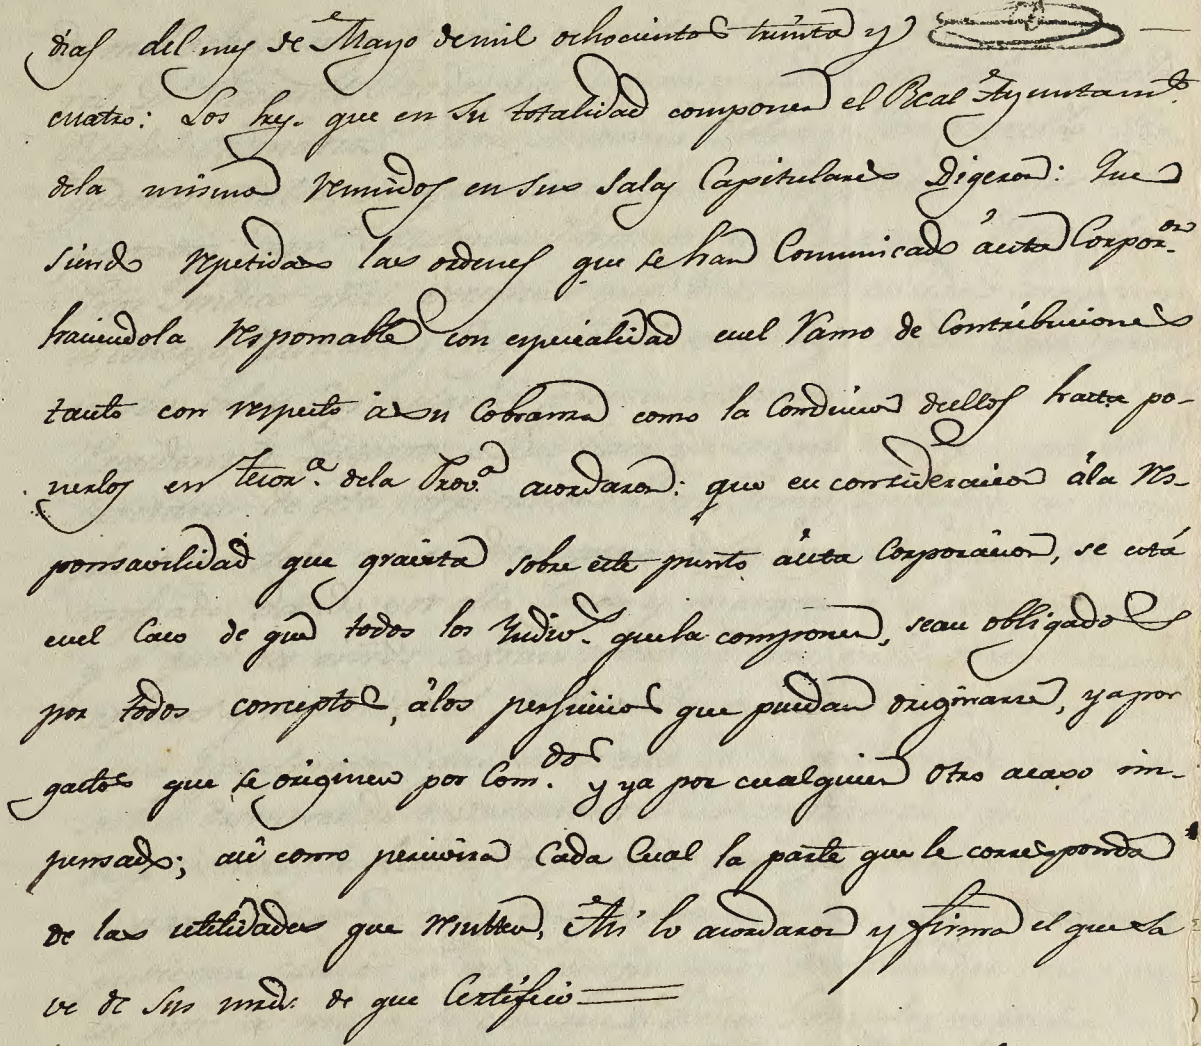 dias del mes de Mayo de mil ochocientos treinta y
cuatro: Los Sres. que en su totalidad componen el Real Ayuntamto.
dela misma reunidos en sus Salas Capitulares Digeron: Que
siendo repetidas las ordenes que se han Comunicado á esta Corporon.
haciendola responsable con especialidad enel Ramo de Contribuciones
tanto con respecto à su Cobranza como la Conducion dellos hasta po-
nerlos en Tesora. dela Prova. acordaron: que en consideracion ála res-
ponsavilidad que gravita sobre este punto á esta Corporacion, se está
enel Caso de que todos los Yndivs. quela componen, sean obligados
por todos conceptos, álos perjuicios que puedan originarse, ya por
gastos que se originen por Comdos. y ya por cualquier otro acaso im-
pensado; asi como percivirá Cada Cual la parte que le corresponda
de las utilidades que resulten, Asi lo acordaron y firma el que sa
ve de sus mrds. de que Certifico